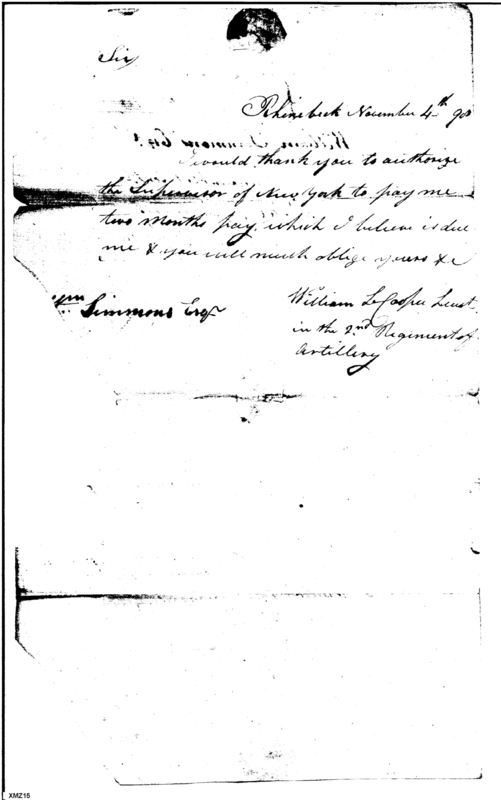 Sir
Rhinebeck November 4th 98
William Simmons Esqr
I would thank you to authorize
the Supervisor of New York to pay me
two months pay which I believe is due
me & you will much oblige yours &c
Wm Simmons Esqr
William L Cooper Lieut
in the 2nd Regiment of
Artillery
XMZ15